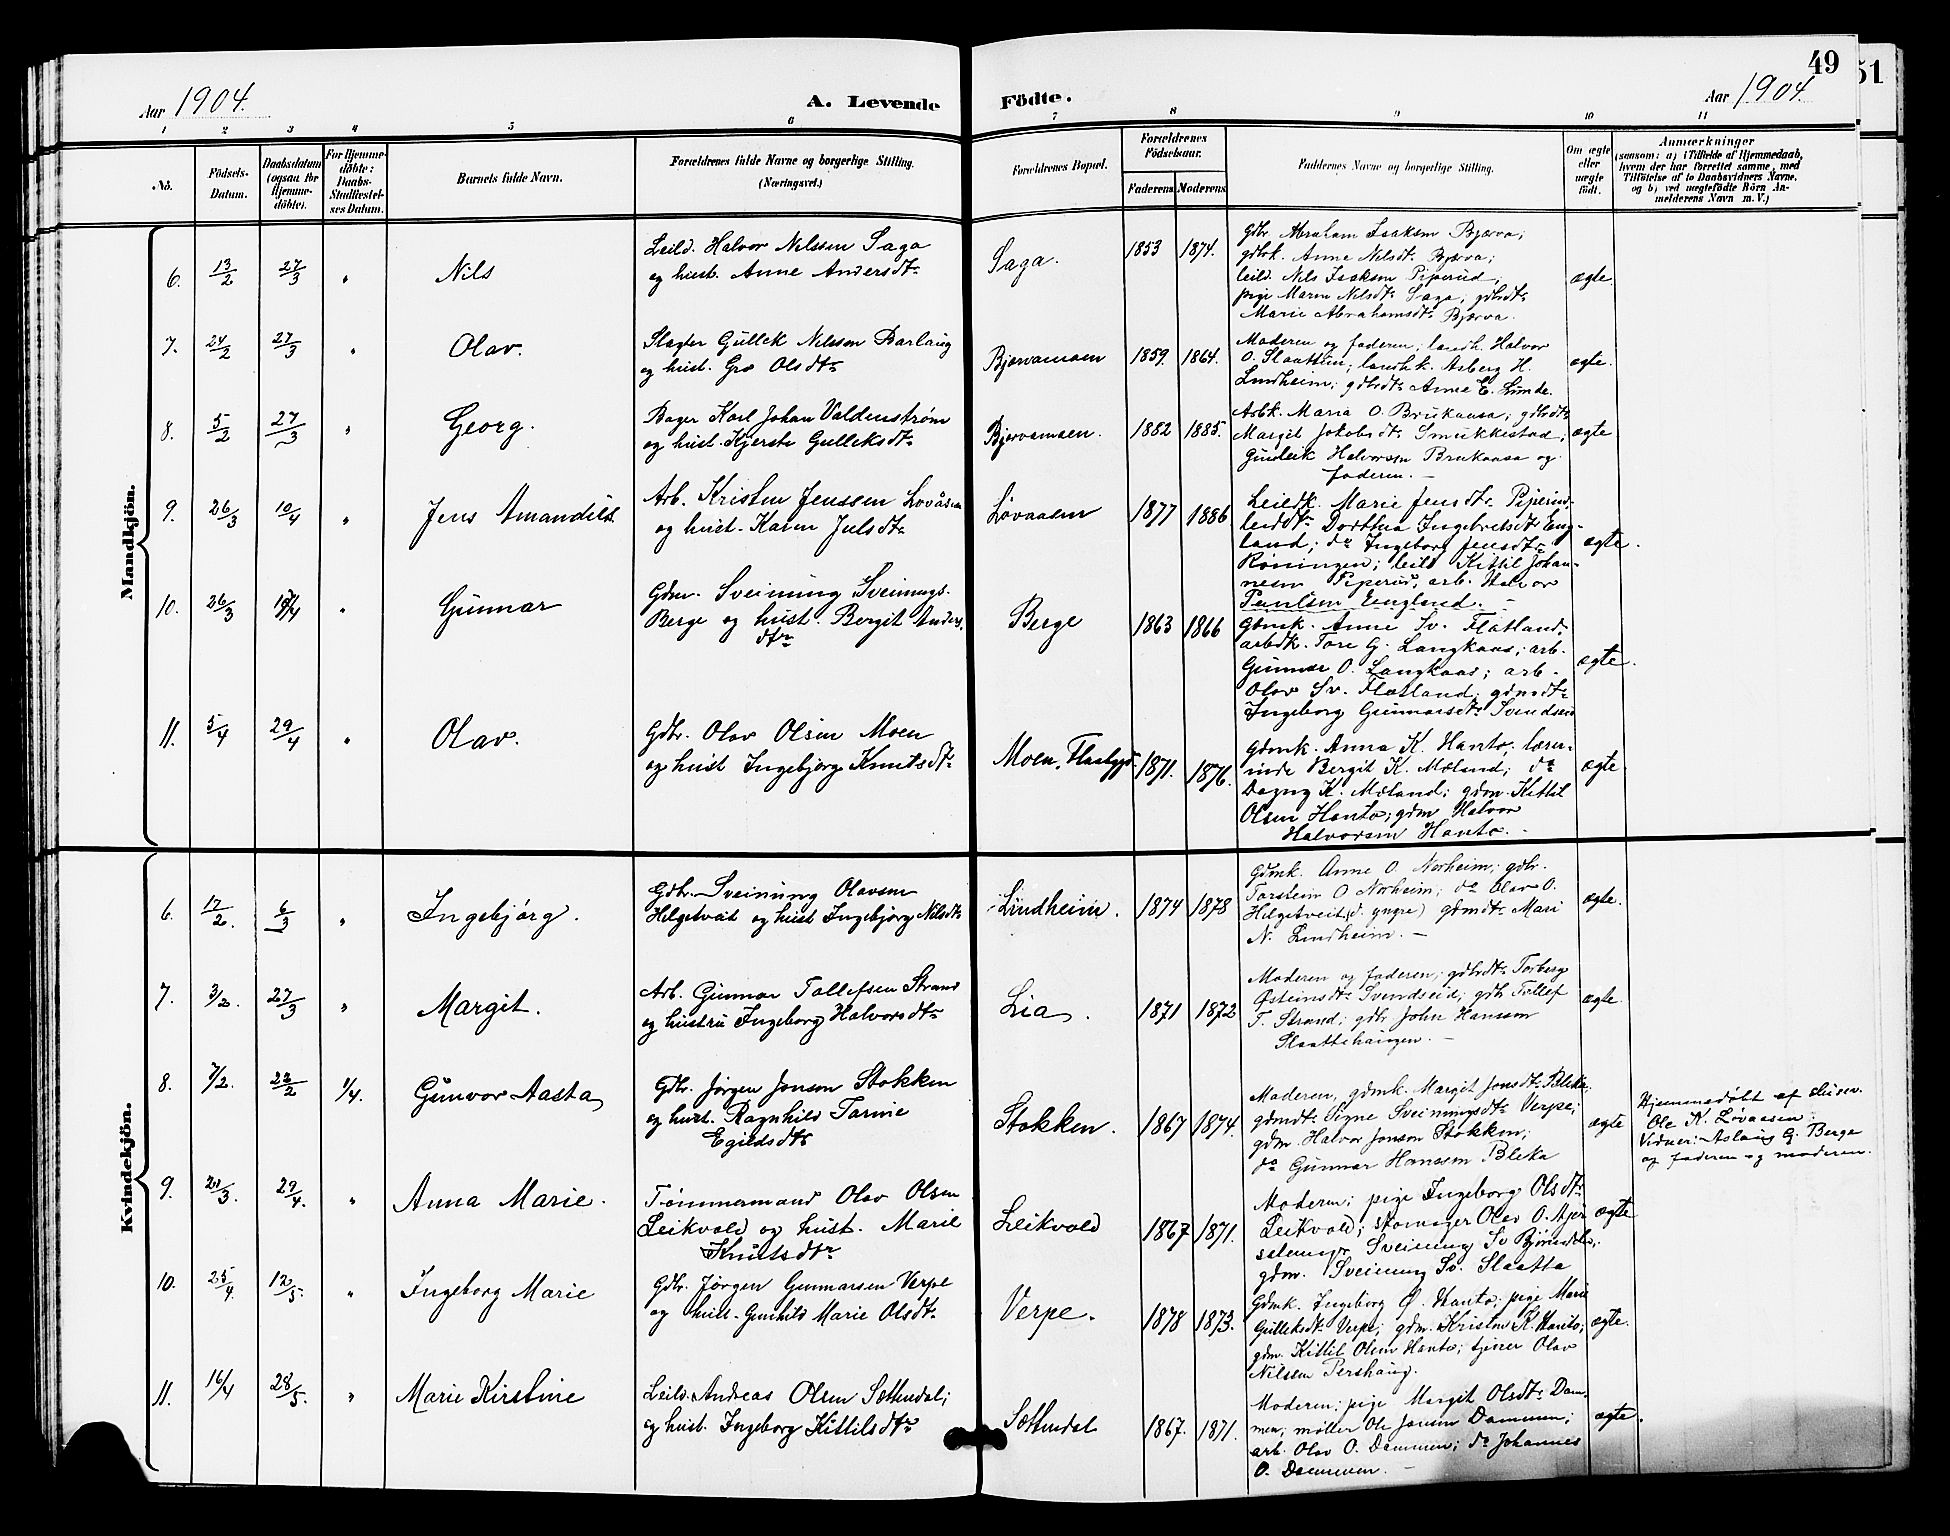 49
51
Aar 1904.
A. Levende Födte.
Aar 1904.
1 2 3 4 5 6 7 8 9 10 11
No.
Födsels-Datum.
Daabsdatum (ogsaa for Hjemme-döbte).
For Hjemme-döbte: Daabs-Stadfæstel-ses Datum.
Barnets fulde Navn.
Forældrenes fulde Navne og borgerlige Stilling. (Næringsvei.)
Forældrenes Bopæl.
Forældrenes Födselsaar.
Faderens
Moderens
Faddernes Navne og borgerlige Stilling.
Om ægte eller uægte födt.
Anmærkninger
(saasom: a) i Tilfælde af Hjemmedaab,
hvem der har forrettet samme, med
Tilföielse af to Daabsvidners Navne,
og b) ved uægtefödte Börn An-
melderens Navn m. V.)
Mandkjön.
6. 13/2 27/3 " Nils
Leild. Halvor Nilssen Saga
og hust. Anne Andersdtr
Saga. 1853 1874.
Gbr Abraham Isaksen Bjærva;
gbrk. Anne Nilsdtr Bjærva;
leild. Nils Isaksen Piperud;
pige Maren Nilsdtr Saga; gbrdtr
Marie Abrahamsdtr Bjærva.
ægte.
7. 24/2 27/3 " Olav.
Slagter Gullek Nilssen Barlaug
og hust. Gro Olsdtr
Bjervamoen 1859. 1864.
Moderen og faderen; landh. Halvor
O. Slaattun; landhk. Asberg H.
Lindheim; gbrdtr Anne E. Lunde.
ægte.
8. 5/2 27/3 " Georg.
Bager Karl Johan Valdenstrøm
og hust. Kjerste Gulleksdtr
Bjervamoen. 1882 1885.
Arbk. Maria O. Brukaasa; gbrdtr
Margit Jakobsdtr Smukkestad;
Gunleik Halvorsen Brukaasa og
faderen. —
ægte
9. 26/3 10/4 " Jens Amandus
Arb. Kristen Jenssen Lovåsen
og hust. Karen Julsdtr
Løvaasen 1877 1886
Leildk. Marie Jensdtr Piperud
leilddtr Dorthea Ingebretsdtr Eng-
land; do Ingeborg Jensdtr
Røningen; leild Kittil Johan-
nesen Piperud, arb. Halvor
Paulsen England. —
ægte.
10. 26/3 " Gunnar
Gdm. Sveinung Sveinungs.
Berge og hust. Bergit Anders.
dtr
Berge 1863 1866
Gdmk. Anne Sv. Flatland.
arbdk. Tore G. Langkaas; arb.
Gunnar O. Langkaas; arb.
Olav Sv. Flatland; gdmdtr
Ingeborg Gunnarsdtr Svendsen
ægte.
11. 5/4 29/4 " Olav.
Gbr. Olav Olsen Moen
og hust Ingebjørg Knutsdtr
Moen, Flaabygd. 1871. 1876.
Gdmk. Anna K. Hanto, lærer-
inde Bergit K. Mæland; do
Dagny K. Mæland; gdm. Kittil
Olsen Hanto; gdm Halvor
Halvorsen Hanto. —
ægte.
Kvindekjön.
6. 17/2. 6/3 " Ingebjórg.
Gbr. Sveinung Olavsen
Helgetveit og hust Ingebjørg Nilsdtr
Lindheim. 1874 1878
Gdmk. Anne O. Norheim; gbr.
Torstein O Norheim; do Olav O.
Hilgetveit (d. yngre) gdmdtr Mari
N. Lindheim. —
ægte.
7. 3/2. 27/3 " Margit.
Arb. Gunnar Tollefsen Strand
og hustru Ingeborg Halvorsdtr
Lia. 1871 1872
Moderen og faderen; gbrdtr Torberg
Østeinsdtr Svendseid; gbr Tollef
T. Strand; gbr John Hanssen
Slaattehaugen. —
ægte.
8. 7/2. 22/2 1/4. Gunvor Aasta
Gbr. Jørgen Jonsen Stokken
og hust. Ragnhild Tarine
Egildsdtr
Stokken. 1867 1874.
Moderen, gdmk. Margit Jonsdtr Bleka.
gdmdtr Signe Sveinungsdtr Verpe;
gdm. Halvor Jonsen Stokken;
do Gunnar Hanssen Bleka
ægte
Hjemmedøbt af
Ole K. Løvaasen.
Vidner: Aslaug G. Berge
og faderen og moderen.
9. 21/3. 29/4. " Anna Marie.
Tømmermand Olav Olsen
Leikvold og hust. Marie
Knutsdtr
Leikvold 1867 1871.
Moderen; pige Ingeborg Olsdtr
Leikvold; skomager Olav O.
Sveinung Sv
gdm. Sveinung Sv. Slaatta
ægte
10. 25/4. 12/5. " Ingeborg Marie
Gbr. Jørgen Gunnarsen Verpe
og hust. Gunhild Marie Olsdtr
Verpe. 1878 1873.
Gdmk. Ingeborg Ø. Hanto; pige Marie
Gulleksdtr Verpe; gdm. Kristen K. Hanto;
gdm. Kittil Olsen Hanto; tjener Olav
Nilsen Pershaug.
ægte.
11. 16/4 28/5. " Marie Kirstine
Leild. Andreas Olsen Sættendal;
og hust. Ingeborg Kittilsdtr
Sættendal 1867. 1871.
Moderen; pige Margit Olsdtr Dam-
men; møller Ole Jonsen Dammen;
arb. Olav O. Dammen; do Johannes
O. Dammen. —
ægte.